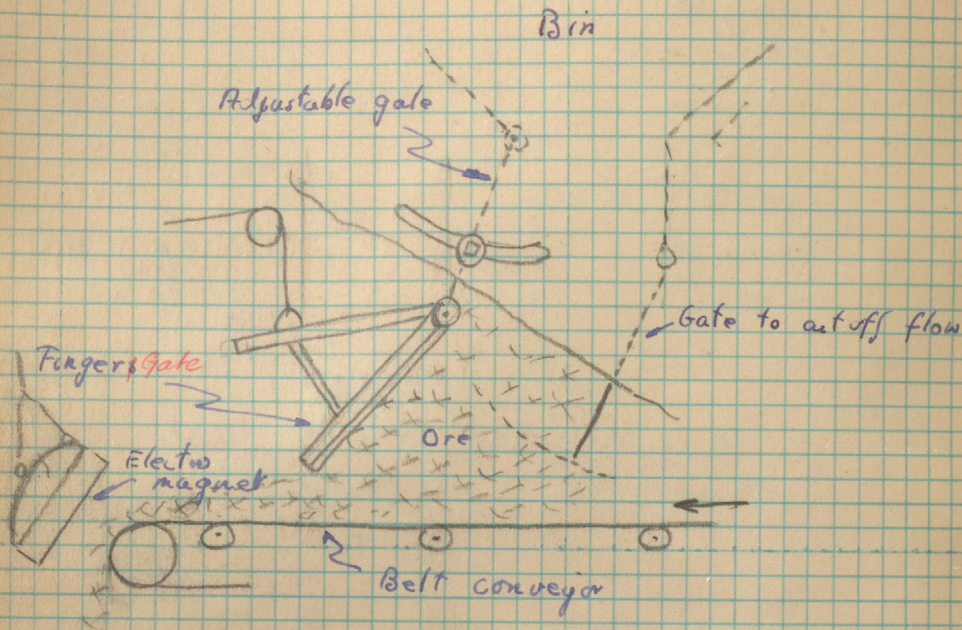 Bin
Adjustable gate
Gate to cut off flow
Fingers Gate
Ore
Electro
magnet
Belt conveyor